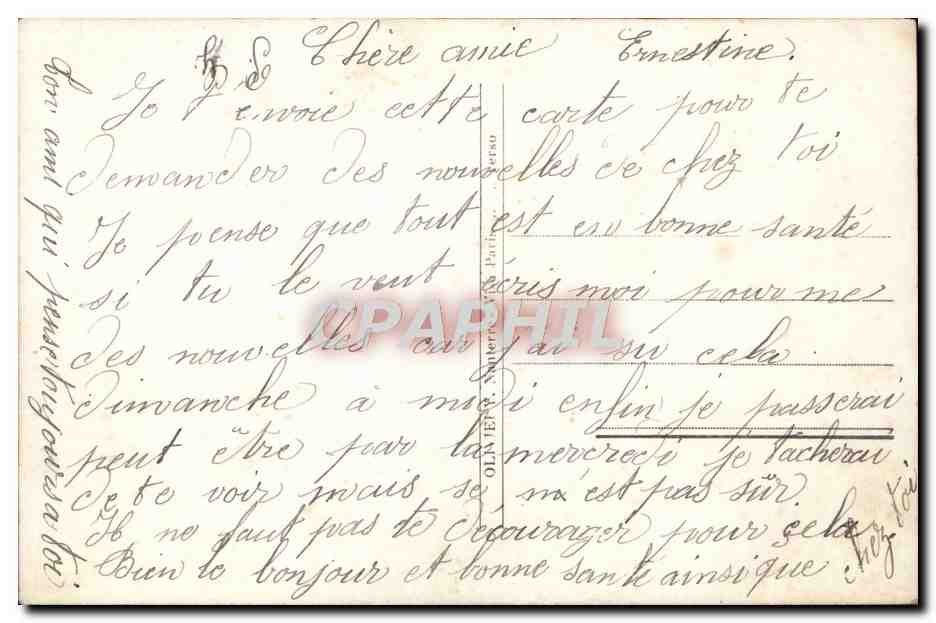 Chère amie Ernestine.
Je t'envoie cette carte pour te
demander des nouvelles de chez toi
Je pense que tout est en bonne santé
si tu le veut écris moi pour me
des nouvelles car j'ai su cela
dimanche à midi enfin je passerai
peut être par la mercredi je tacherai
de te voir mais se n'est pas sûr
Il ne faut pas te décourager pour çela
Bien le bonjour et bonne santé ainsi que
chez toi
Ton ami qui pense toujours a toi
OLIVIER, Nanterre Paris verso
CPAPHIL